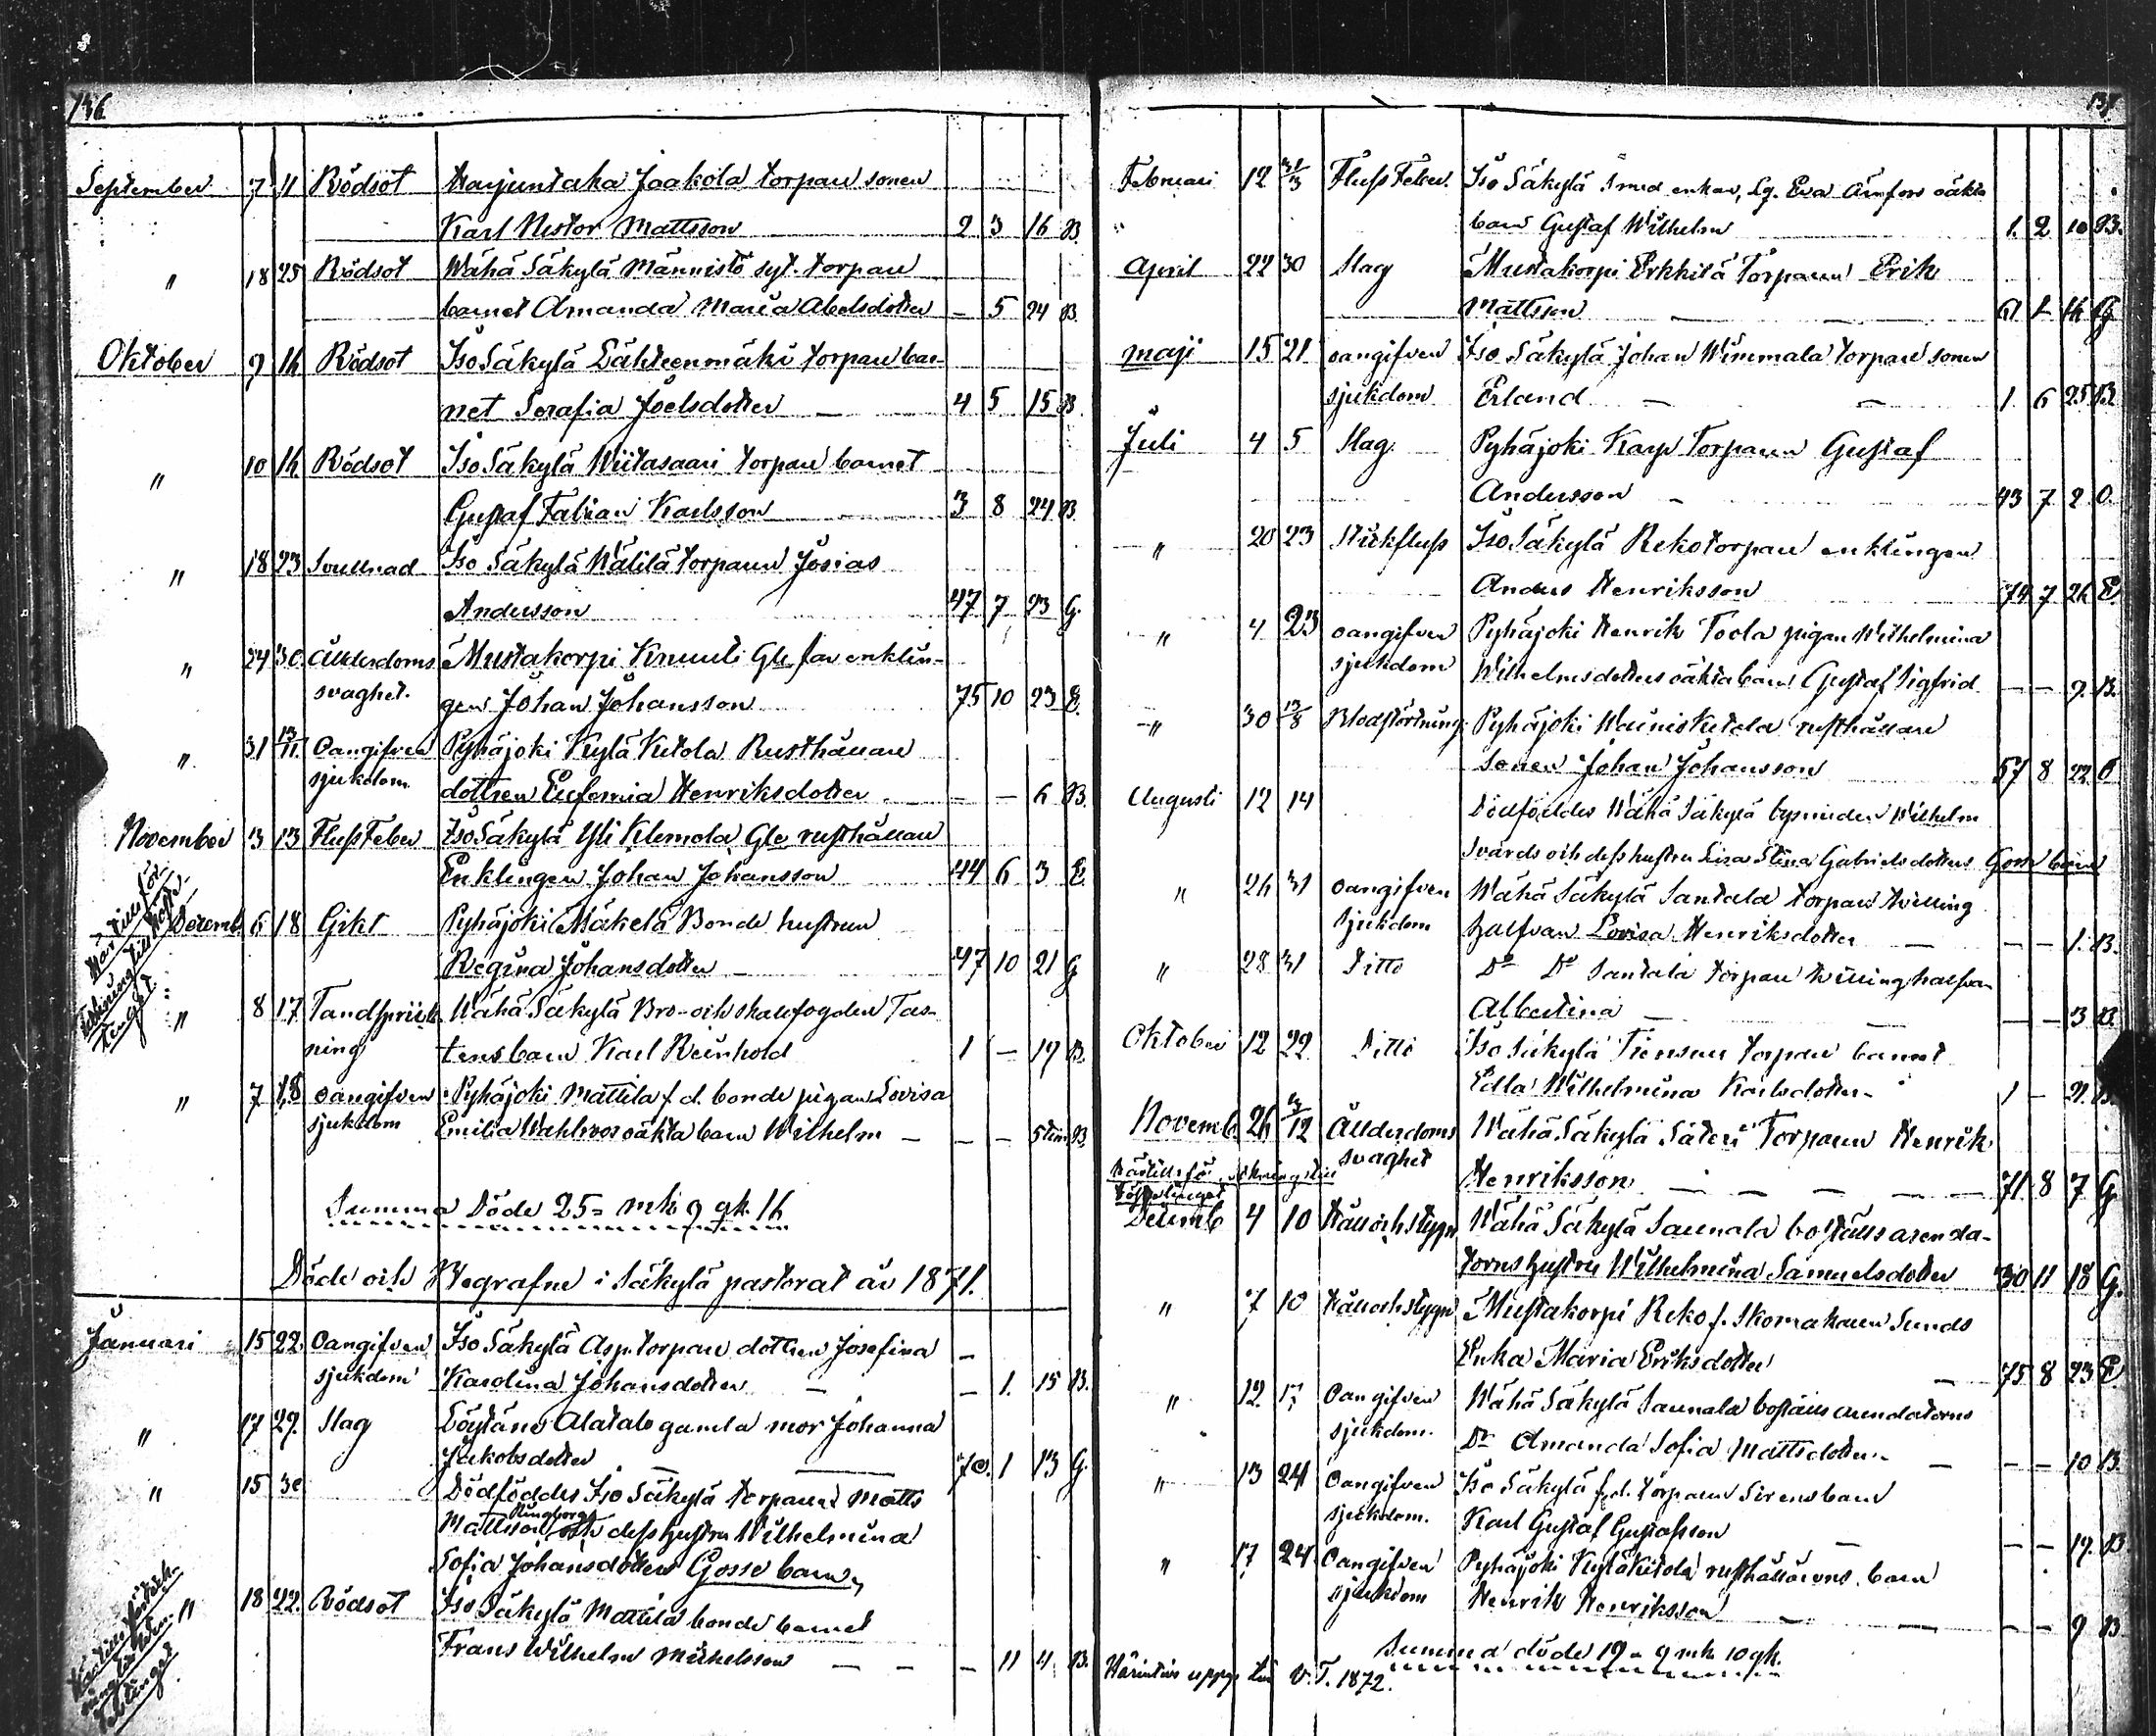 136
September 7 11 Rödsot Harjuntaka Jaakola torpare sonen
Karl Nestor Mattsson 2 3 16 B.
" 18 25 Rödsot Wähä Säkylä Männistö syt. torpare
barnet Amanda Maria Abelsdotter — 5 24 B.
Oktober 9 16 Rödsot Iso Säkylä Lähteenmäki torpare bar-
net Serafia Joelsdotter — 4 5 15 B.
" 10 16 Rödsot Iso Säkylä Wiitasaari torpare barnet
Gustaf Fabian Karlsson 3 8 24 B.
" 18 23 Svullnad Iso Säkylä Wälilä torparen Josias
Andersson 47 7 23 G.
" 24 30. Ålderdoms Mustakorpi Knuuti Gle far enklin-
svaghet. gen Johan Johansson 75 10 23 E.
" 31 13/11. Oangifven Pyhäjoki Kylä Kitola Rusthållare
sjukdom dottren Eufemia Henriksdotter — — 6 B.
November 3 13 Fluss Feber Iso Säkylä Yli Klemola Gle rusthållare
Enklingen Johan Johansson 44 6 3 E.
Decemb. 6 18 Gikt Pyhäjoki Mäkelä Bonde hustrun
Regina Johansdotter 47 10 21 G
Här tills för-
teckning till Höfts-
tinget
" 8 17 Tandsprick Wähä Säkylä Bro- och skallfogden Tas-
ning tens barn Karl Reinhold 1 — 19 B.
" 7 18 oangifven Pyhäjoki Mattila f. d. bonde pigan Lovisa
sjukdom Emilia Wahlroos oäkta barn Wilhelm — — — 5 tim B.
Summa Döde 25 = mk 9 qk. 16
Döde och Begrafne i Säkylä pastorat år 1871.
Januari 15 22. Oangifven Iso Säkylä Asp. torpare dottren Josefina —
sjukdom Karolina Johansdotter — — 1. 15 B.
" 17 29. Slag Löytäne Alatalo gamla mor Johanna
Jakobsdotter — 70. 1 13 G.
" 15 30 Dödföddes Iso Säkylä torparen Matts
Ringborgs
Mattsson och dess hustru Wilhelmina
Sofia Johansdotters Gosse barn,
" 18 22. Rödsot Iso Säkylä Mattila bonde barnet
Frans Wilhelm Mickelsson — — — 11 4 B.
137
Februari 12 31/3 Fluss Feber. Iso Säkylä Smed enkan, Lg. Eva Ärnfors oäkta
" barn Gustaf Wilhelm 1. 2 10 B.
April 22 30 Slag Mustakorpi Erkkilä Torparen Erik
Mattsson 61 1 16 G
Maji 15 21 oangifven Iso Säkylä Johan Wimmala torpare sonen
sjukdom Erland — — 1 6 25 B.
Juli 4 5 Slag Pyhäjoki Karp Torparen Gustaf
Andersson — 43 7 2 O.
" 20 23 Stickfluss Iso Säkylä Reko torpare enklingen
Anders Henriksson 74 7 26 E.
" 4 23 oangifven Pyhäjoki Henrik Toola pigan Wilhelmina
sjukdom Wilhelmsdotters oäkta barn Gustaf Sigfrid — — 9 B.
" 30 13/8 Blodstörtning Pyhäjoki Wainis Kitola rusthållare
Sonen Johan Johansson 57 8 22 O
Augusti 12 14 Dödföddes Wähä Säkylä bysmeden Wilhelm
Svärds och dess hustru Lisa Stina Gabrielsdotters Gosse barn
" 26 31 oangifven Wähä Säkylä Santala torpare tvilling
sjukdom halfvan Lovisa Henriksdotter — — — 1. B.
" 28 31 Ditto Do Do Santala torpare tvilling halfvan
Albertina — — — — 3 B.
Oktober 12 22 Ditto Iso Säkylä Tiensuu torpare barnet
Edla Wilhelmina Karlsdotter 1 — 21. B.
Novemb. 26 3/12 Ålderdoms Wähä Säkylä Säteri Torparen Henrik
svaghet Henriksson — — — — 71 8 7 G.
Decemb 4 10 Håll och stygn Wähä Säkylä Saunala boställs arenda-
torns hustru Wilhelmina Samuelsdotter 30 11 18 G.
" 7 10 Håll och stygn Mustakorpi Reko f. Skomakaren Sunds
Enka Maria Eriksdotter — 75 8 23 E.
" 12. 17 Oangifven Wähä Säkylä Saunala boställs arendatorns
sjukdom. Dr Amanda Sofia Mattsdotter — — — 10 B.
" 13 24 Oangifven Iso Säkylä f. d. torparen Sirens barn
sjukdom. Karl Gustaf Gustafsson — — — 19. B.
" 17 24. Oangifven Pyhäjoki Kyläkitola rusthållarens barn
sjukdom Henrik Henriksson — — — — 9 B
Summa döde 19 = 9 mk 10 qk.
Härintills uppg. till V. T. 1872.